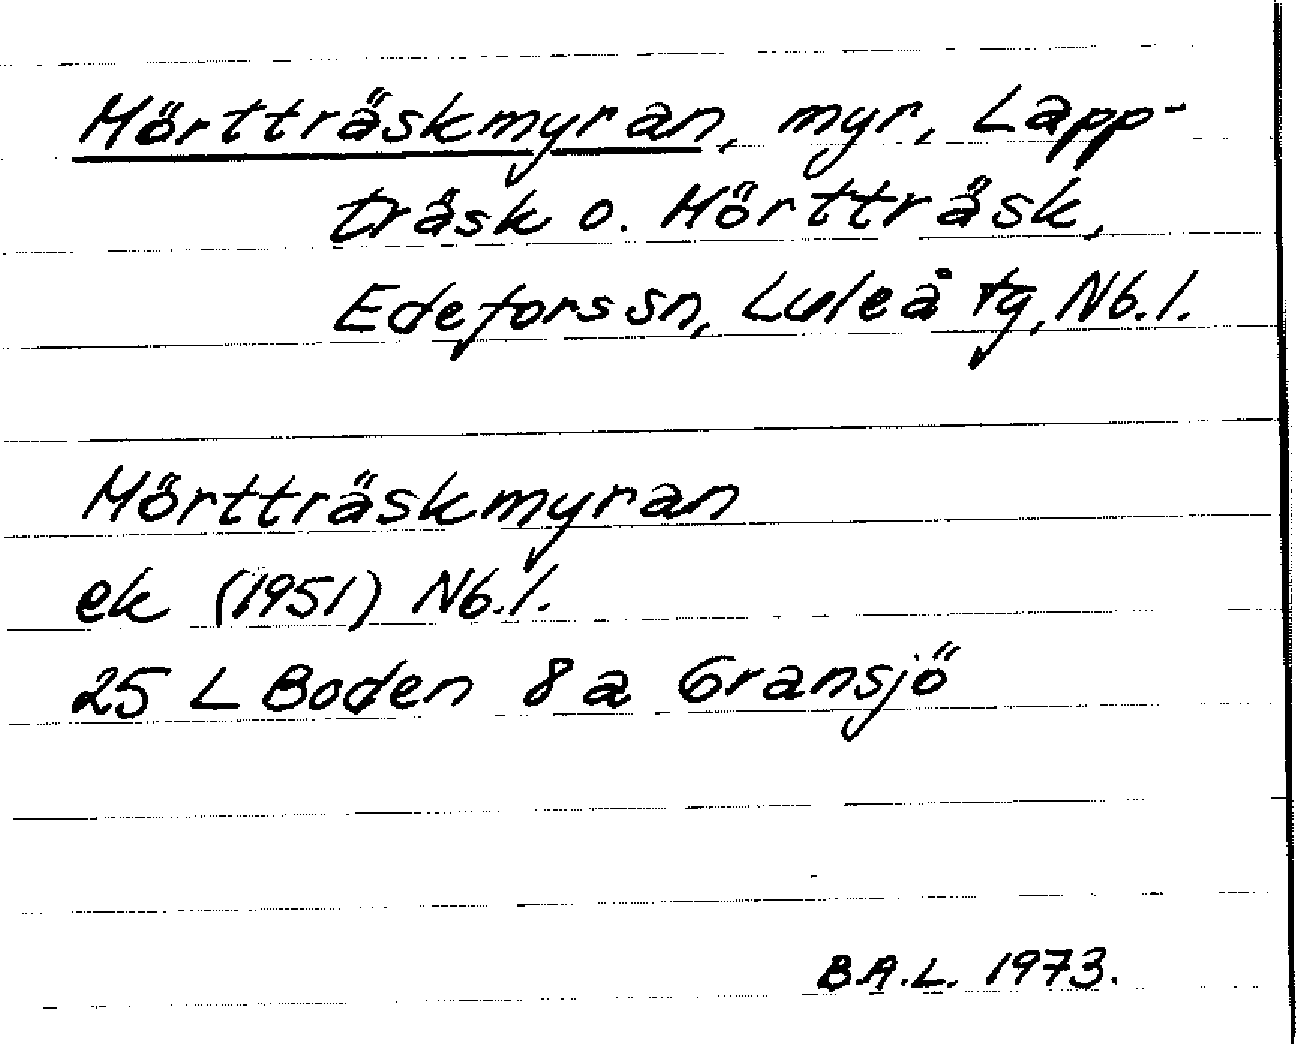 Mörtträskmyran, myr, Lapp-
träsk o. Mörtträsk,
Edefors sn, Luleå tg, Nb. l.
Mörtträskmyran
ek (1951) Nb. l.
25 L Boden 8 a Gransjö
B.A.L. 1973.